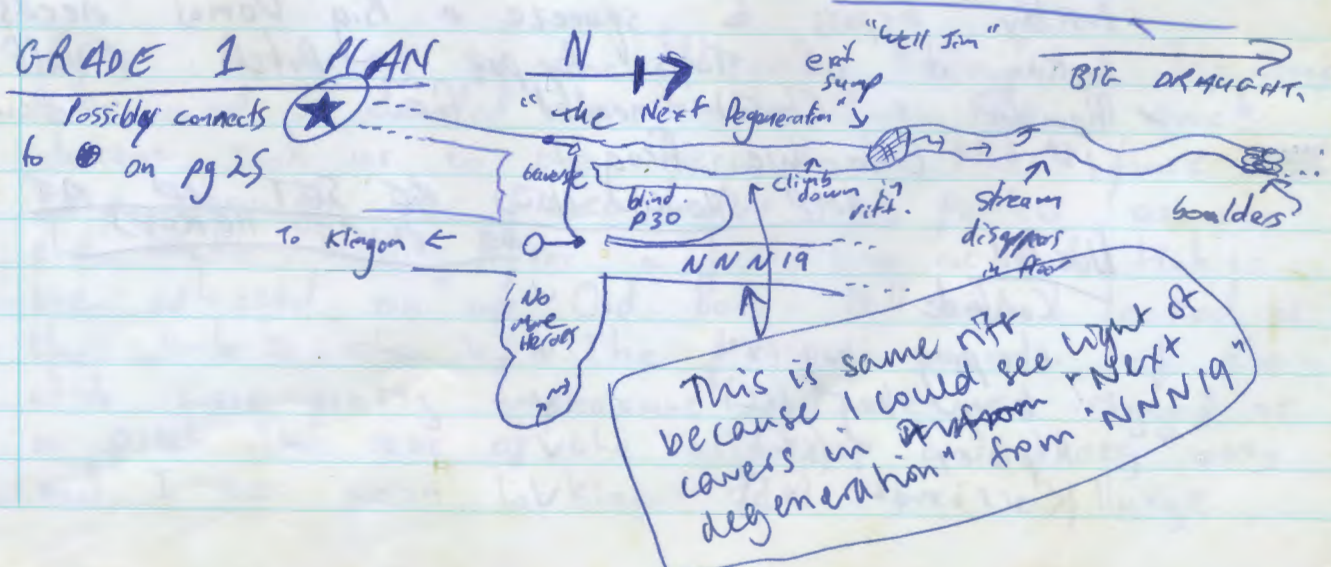 GRADE 1 PLAN
N
"Well Jim"
BIG DRAUGHT.
Possibly connects
to on pg 25
"the Next Degeneration"
exit
sump
traverse
blind.
P30
climb
down in
rift.
stream
disappears
in floor
boulders
To Klingon ←
NNN19
No
more
Heroes
This is same rift
because I could see light of
cavers in "Next
degeneration" from "NNN19"